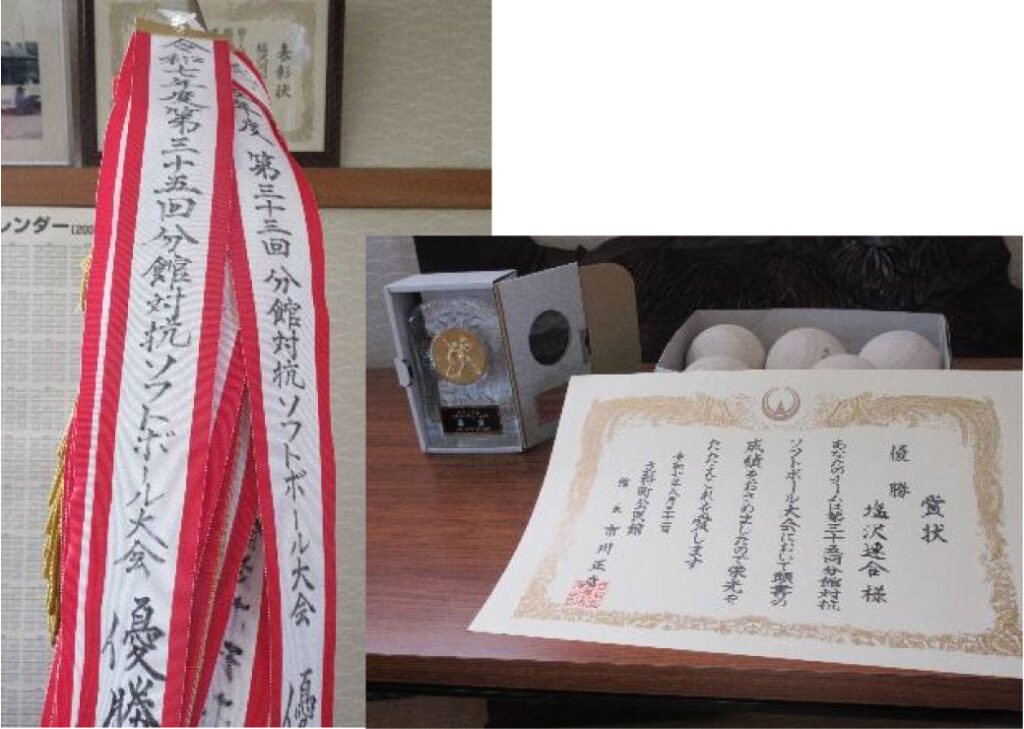 表彰状
令和七年度第三十五回分館対抗ソフトボール大会 優勝
年度 第三十三回 分館対抗ソフトボール大会 優
レンダー(200
賞状
優勝
塩沢連合様
あなたのチームは第三十五回分館対抗
ソフトボール大会において頭書の
成績をおさめましたので栄光を
たたえこれを賞します
令和七年八月三十一日
立科町公民館
館長 市川正